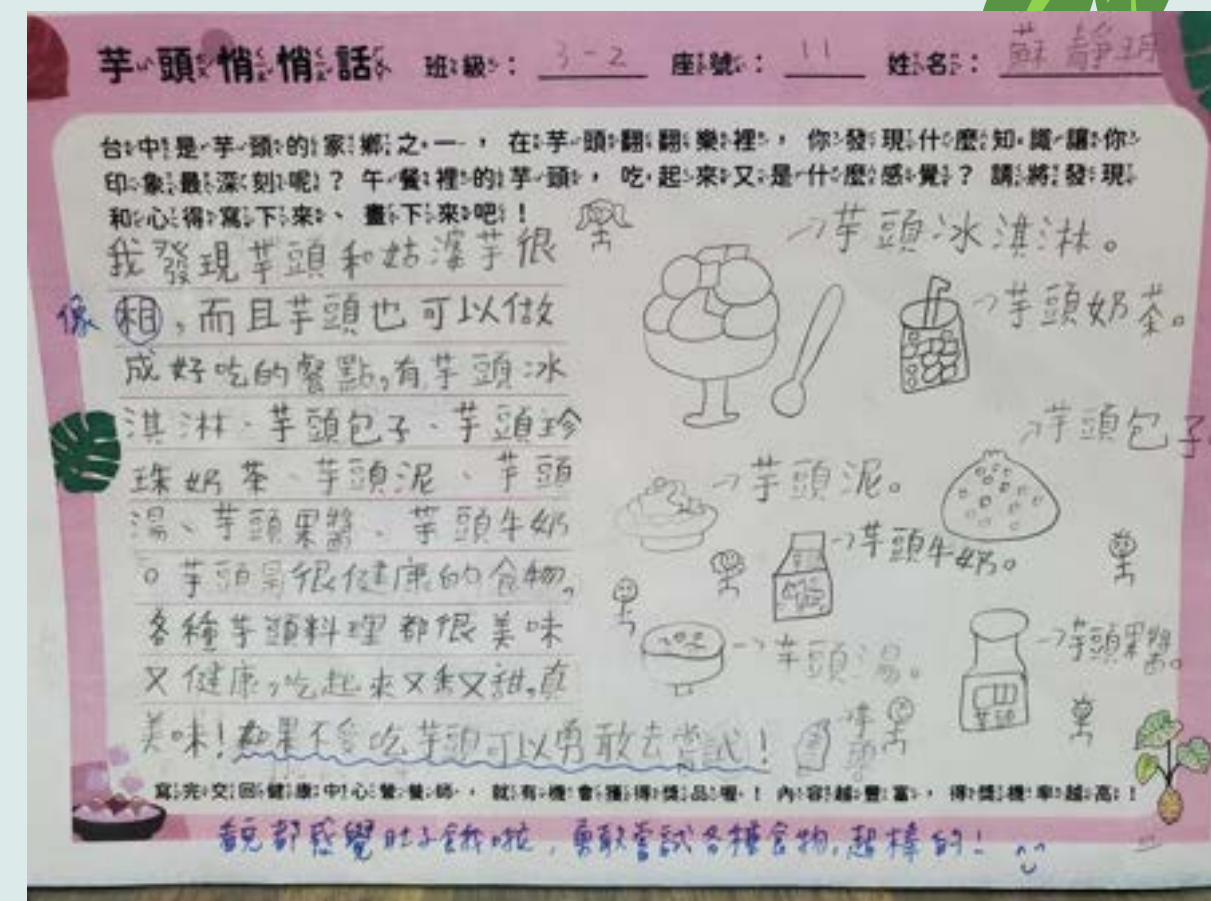 芋頭悄悄話 班級: 3-2 座號: 11 姓名: 蘇靜玥
台中是芋頭的家鄉之一,在芋頭翻翻樂裡,你發現什麼知識讓你
印象最深刻呢?午餐裡的芋頭,吃起來又是什麼感覺?請將發現
和心得寫下來、畫下來吧!
我發現芋頭和姑婆芋很
像相,而且芋頭也可以做
成好吃的餐點,有芋頭冰
淇淋、芋頭包子、芋頭珍
珠奶茶、芋頭泥、芋頭
湯、芋頭果醬、芋頭牛奶
。芋頭是很健康的食物,
各種芋頭料理都很美味
又健康,吃起來又香又甜,真
美味!如果不愛吃芋頭可以勇敢去嘗試!
芋頭冰淇淋。
芋頭奶茶。
芋頭包子。
芋頭泥。
芋頭牛奶。
芋頭湯。
芋頭果醬。
芋頭
寫完交回健康中心營養師,就有機會獲得獎品喔!內容越豐富,得獎機率越高!
看完都感覺肚子餓啦,勇敢嘗試各種食物,超棒的!